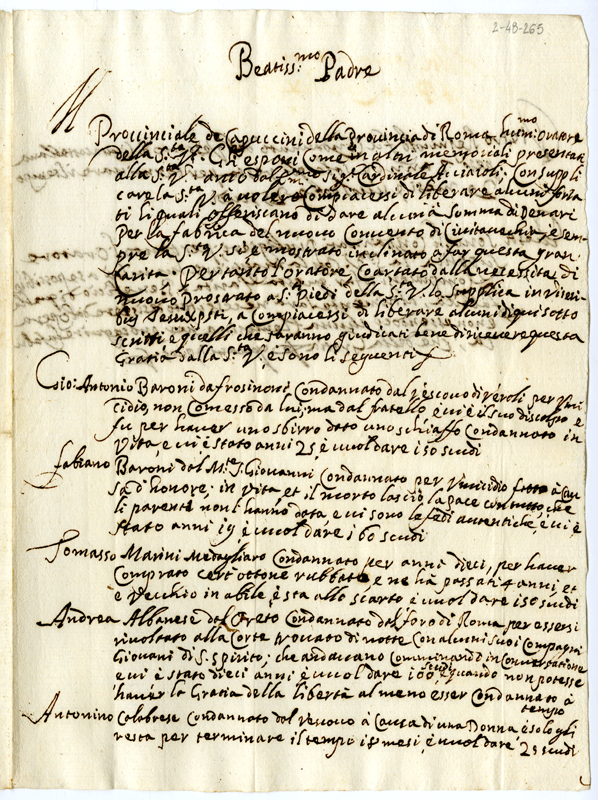 2-48-265
Beatiss.mo Padre
Il Provinciale de Capuccini della Provincia di Roma hum.mo Oratore
della S.ta V. Gli espone come in altri memoriali presentati
alla S.ta V. anco dal Sig.r Cardinale Acciaioli. Con suppli
care la S.ta V. à volere Compiacersi di liberare alcuni forza
ti li quali offeriscano di dare alcuna Somma di Denari
Per la fabrica del nuovo Convento di Civitavechia, e sem
pre la S.ta V. si è mostrato inclinato a far questa gran
Carità. Pertanto l'Oratore Coartato dalla necessità di
nuovo Prostrato a S.ti Piedi della S.ta V. lo supplica in viseri
bus Jesu Xpsti, a Compiacersi di liberare alcuni di qui sotto
scritti e quelli che saranno giudicati bene di ricevere questa
Gratia dalla S.ta V. e sono li seguenti
Gio: Antonio Baroni da frosinone Condannato dal Vescovo di Veroli per Umi
cidio, non Comesso da lui, ma dal fratello e vi è il suo discolpo e
fu per haver uno sbirro dato uno schiaffo Condannato in
Vita, e vi è stato anni 25 è vuol dare 150 scudi
fabiano Baroni dal M.te S. Giovanni Condannato per Umicidio fatto à Cau
sa d'honore, in Vita et il morto lasciò la pace con tutto che
li parenti non l'hanno data e vi sono le fedi autentiche, e vi è
stato anni 19 è vuol dare 160 scudi
Tomasso Marini Medagliaro Condannato per anni dieci, per haver
Comprato cert'ottone rubbato e ne ha passati 4 anni, et
è Vecchio inabile è sta allo scarto è vuol dare 150 scudi
Andrea Albanese del Condannato dal foro di Roma per essersi
rivoltato alla Corte trovato di notte Con alcuni suoi Compagni
Giovani di S. Spirito, che andavano Comminando in Conversatione
e vi è stato dieci anni è vuol dare 100 scudi quando non potesse
haver la Gratia della libertà al meno esser Condannato à
tempo
Antonino Calabrese Condannato dal Vescovo à Causa di una Donna, è solo gli
resta per terminare il tempo 18 mesi, è vuol dare 25 scudi